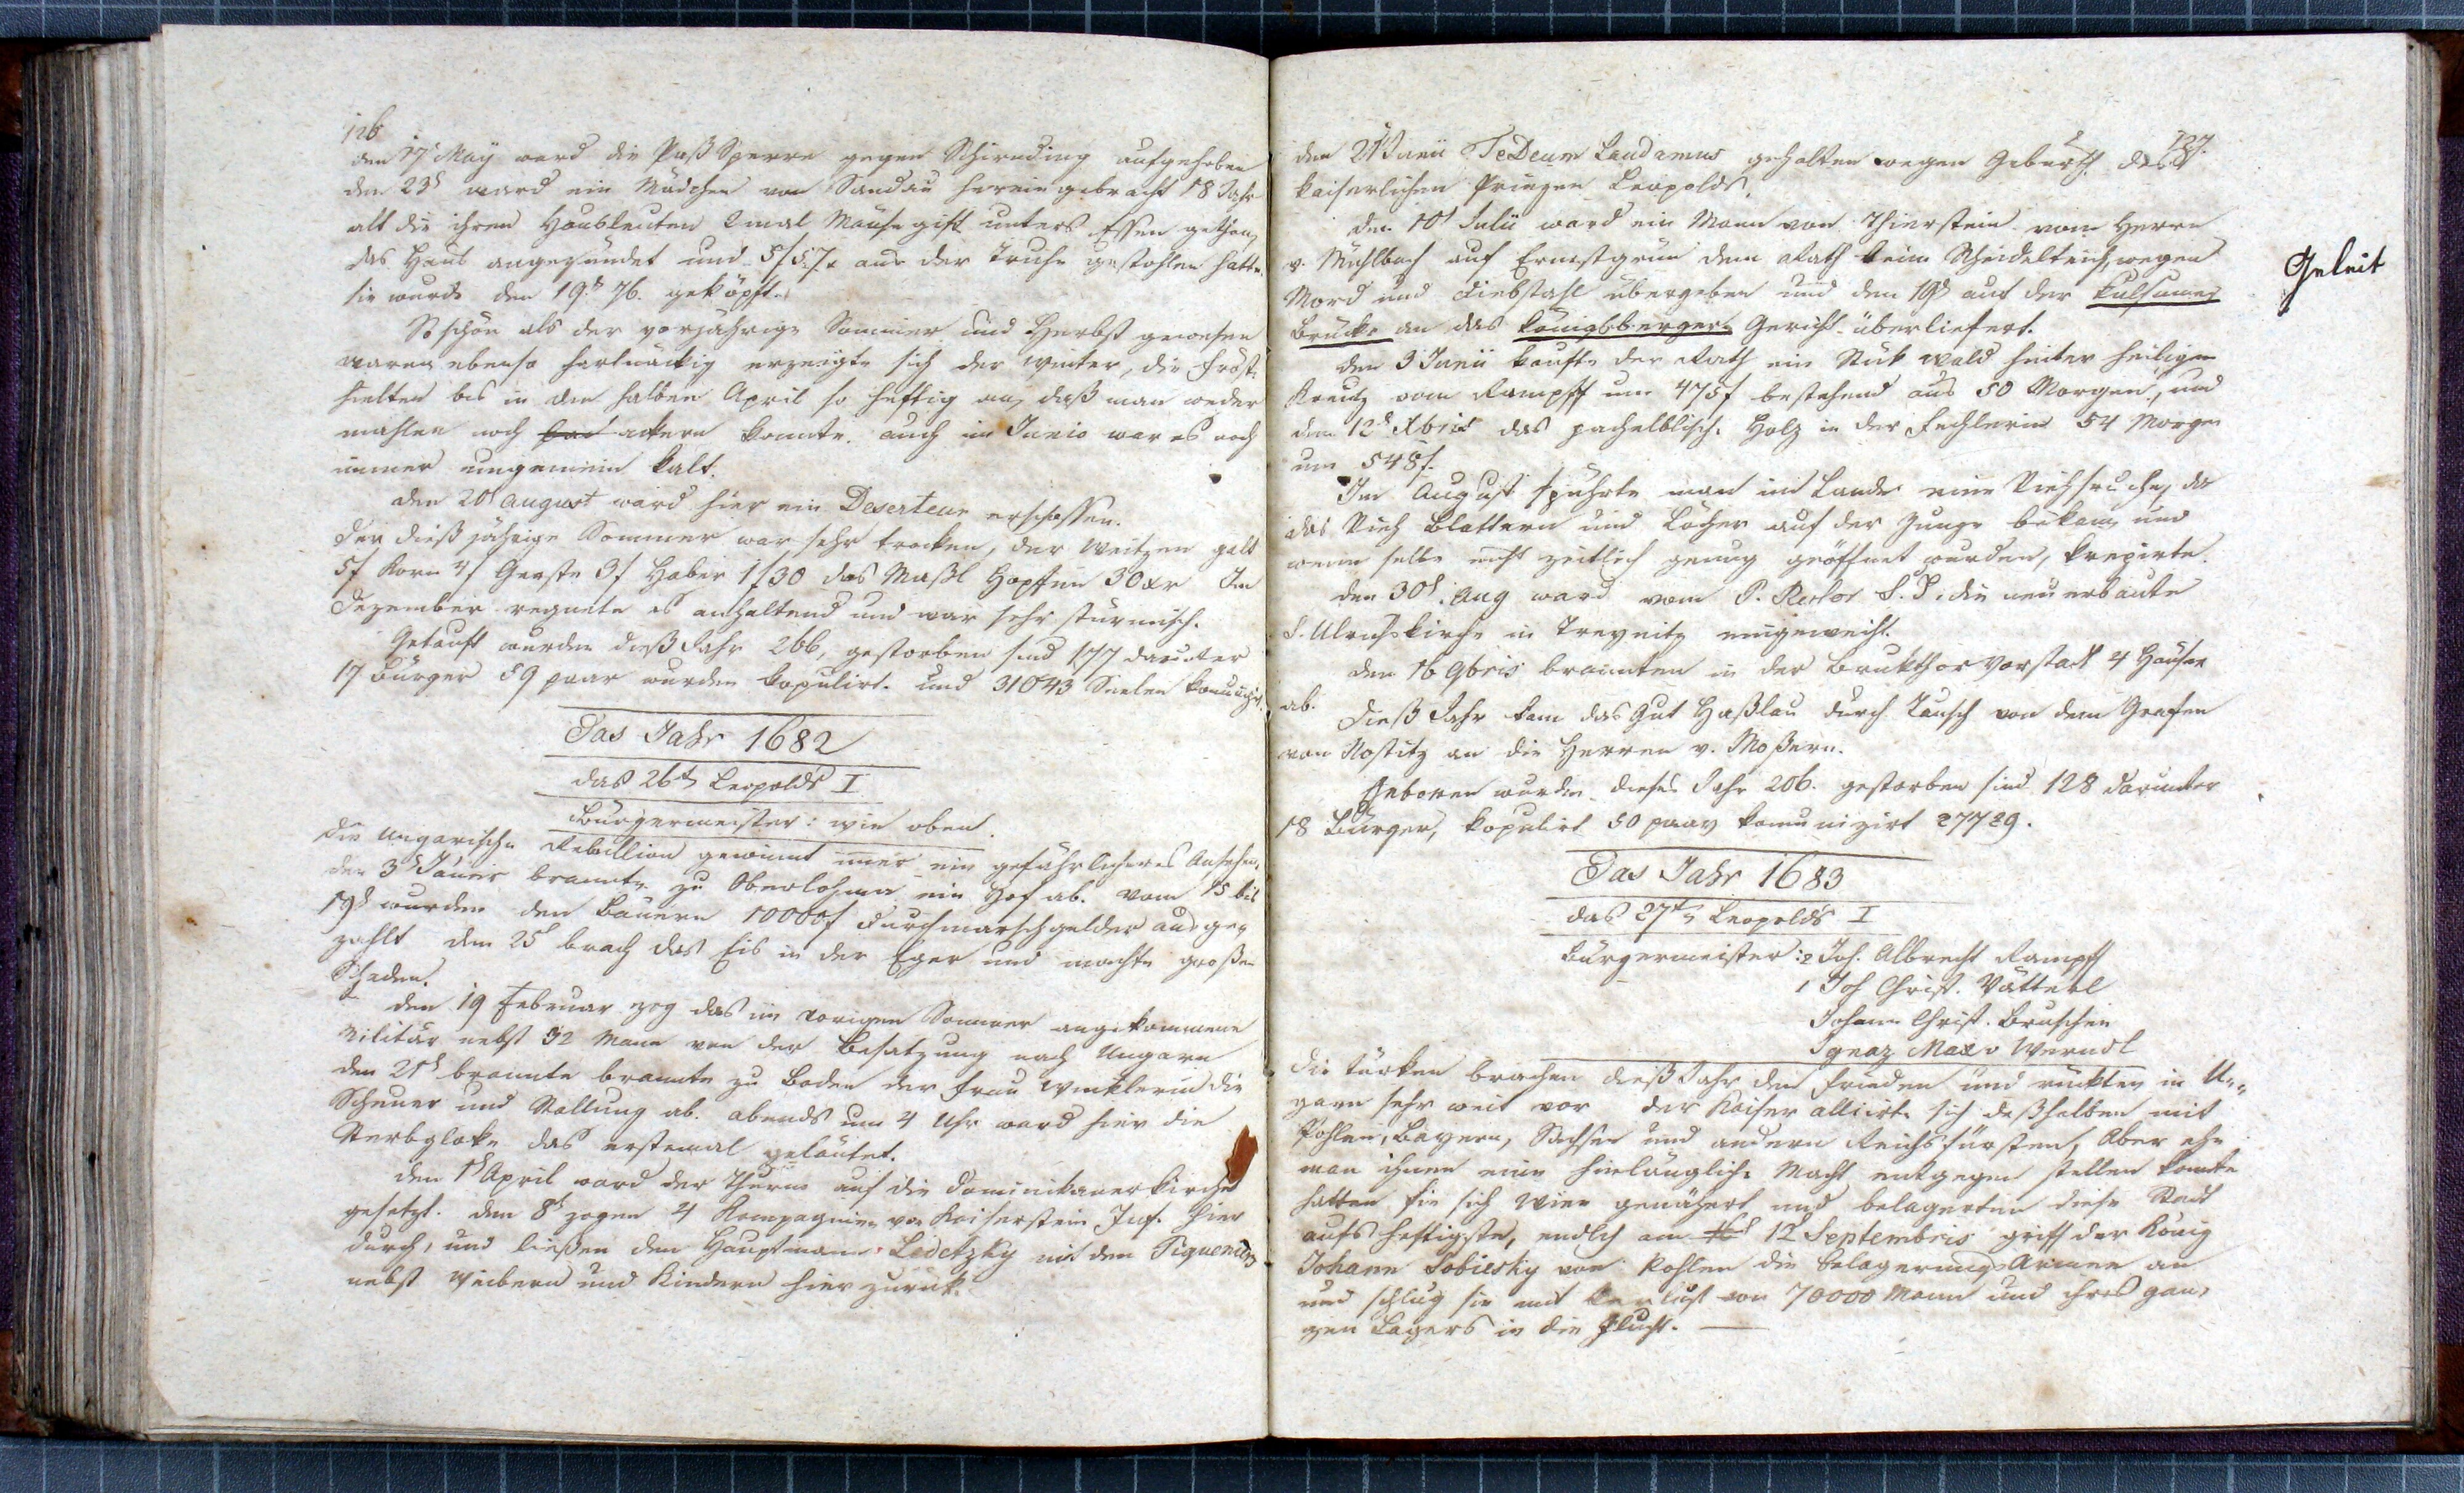 126
den 17 May ward die Paß Sperre gegen Schirnding aufgehoben
den 23t ward ein Mädchen von Sandau hereingebracht 18 Jahr
alt die ihren Hausleuten 2 mal Mäusegift unters Essen gethan,
das Haus angezündet und aus der Truhe gestohlen hatte.
sie wurde den 19t 7b. geköpft.
So schön als der vorjährige Sommer und Herbst gewesen
waren ebenso hartnäckig erzeigte sich der Winter, die Fröste
hielten bis in den halben April so heftig an, daß man weder
mahlen noch ackern konnte. auch im Junio war es noch
immer ungemein kalt.
den 20t August ward hier ein Deserteur erschossen.
der dießjährige Sommer war sehr trocken, der Weitzen galt
5f Korn 4f Gerste 3f Haber 1f30 das Maßl Hopfen 30xr Im
Dezember regnete es anhaltend und war sehr stürmisch.
Getauft wurden dieß Jahr 266, gestorben sind 177 darunter
17 Bürger 59 paar wurden kopulirt. und 31043 Seelen komunizirt.
Das Jahr 1682
das 26te Leopolds I
Bürgermeister: wie oben.
die Ungarische Rebellion gewinnt imer ein gefährlicheres Ansehen,
den 3t Jäner brannte zu Oberlohma ein Hof ab. vom 15 bis
19t wurden den Bauern 10000f Durchmarschgelder ausge,
zahlt den 25t brach das Eis in der Eger und machte großen
Schaden.
den 19 Februar zog das im vorigen Sommer angekommene
Militär nebst 32 Mann von der Besatzung nach Ungarn
den 21t brannte brannte zu Boden der Frau Winklerin die
Scheuer und Stallung ab. abends um 4 Uhr ward hier die
Sterbgloke das erstemal geläutet.
den 1t April ward der Thurm auf die Dominikanerkirche
gesetzt. den 8t zogen 4 Kompagnien von Kaiserstein Inf. hier
durch, und ließen den Hauptmann Ledetzky mit den
nebst Weibern und Kindern hier zurük.
127.
den 21 Junii TeDeum Laudamus gehalten wegen Geburth des
kaiserlichen Prinzen Leopolds.
den 10t Julii ward ein Mann von Thierstein vom Herrn
v. Mühlbach auf Ernestgrün dem Rath beim Scheidelteich, wegen
Mord und Diebstahl übergeben und den 19t auf der Kulsamer
Brücke an das königsberger Gericht überliefert.
Geleit
den 3 Junii kaufte der Rath ein Stük Wald hinter heiligen
Kreutz vom Rampff um 475f bestehend aus 50 Morgen, und
den 12t Xbris das pachelblisch. Holz in der Fechlerin 54 Morgen
um 548f.
Im August spührte man im Lande eine Viehseuche, da
das Vieh Blattern und Löcher auf der Zunge bekam, und
wenn selbe nicht zeitlich genug geöffnet wurden, krepirte.
den 30t Aug ward vom P. Rector S. J. die neu erbaute
S. Ulrichskirche in Treynitz eingeweiht.
den 16 9bris brannten in der Brukthor Vorstadt 4 Häuser
ab.
Dieß Jahr kam das Gut Haßlau durch Tausch von dem Grafen
von Nostitz an die Herren v. Moßern.
Geboren wurden dieses Jahr 206. gestorben sind 128 darunter
18 Bürger, kopulirt 50 paar komunizirt 27729.
Das Jahr 1683
das 27te Leopolds I
Bürgermeister: 2 Joh. Albrecht Rampff
1 Joh Christ. Vätterl
Johann Christ. Bruschen
Ignaz Max v Werndl
Die Türken brachen dieß Jahr den Frieden und rückten in Un,
garn sehr weit vor der Kaiser alliirte sich deßhalben mit
Pohlen, Bayern, Sachsen und andern Reichsfürsten, Aber ehe
man ihnen eine hinlängliche Macht entgegen stellen konnte
hatten sie sich Wien genähert und belagerten diese Stadt
aufs heftigste, endlich am 12 Septembris griff der König
Johann Sobiesky von Pohlen die Belagerungs Armee an
und schlug sie mit Verlust von 70000 Mann und ihres gan,
zen Lagers in die Flucht.